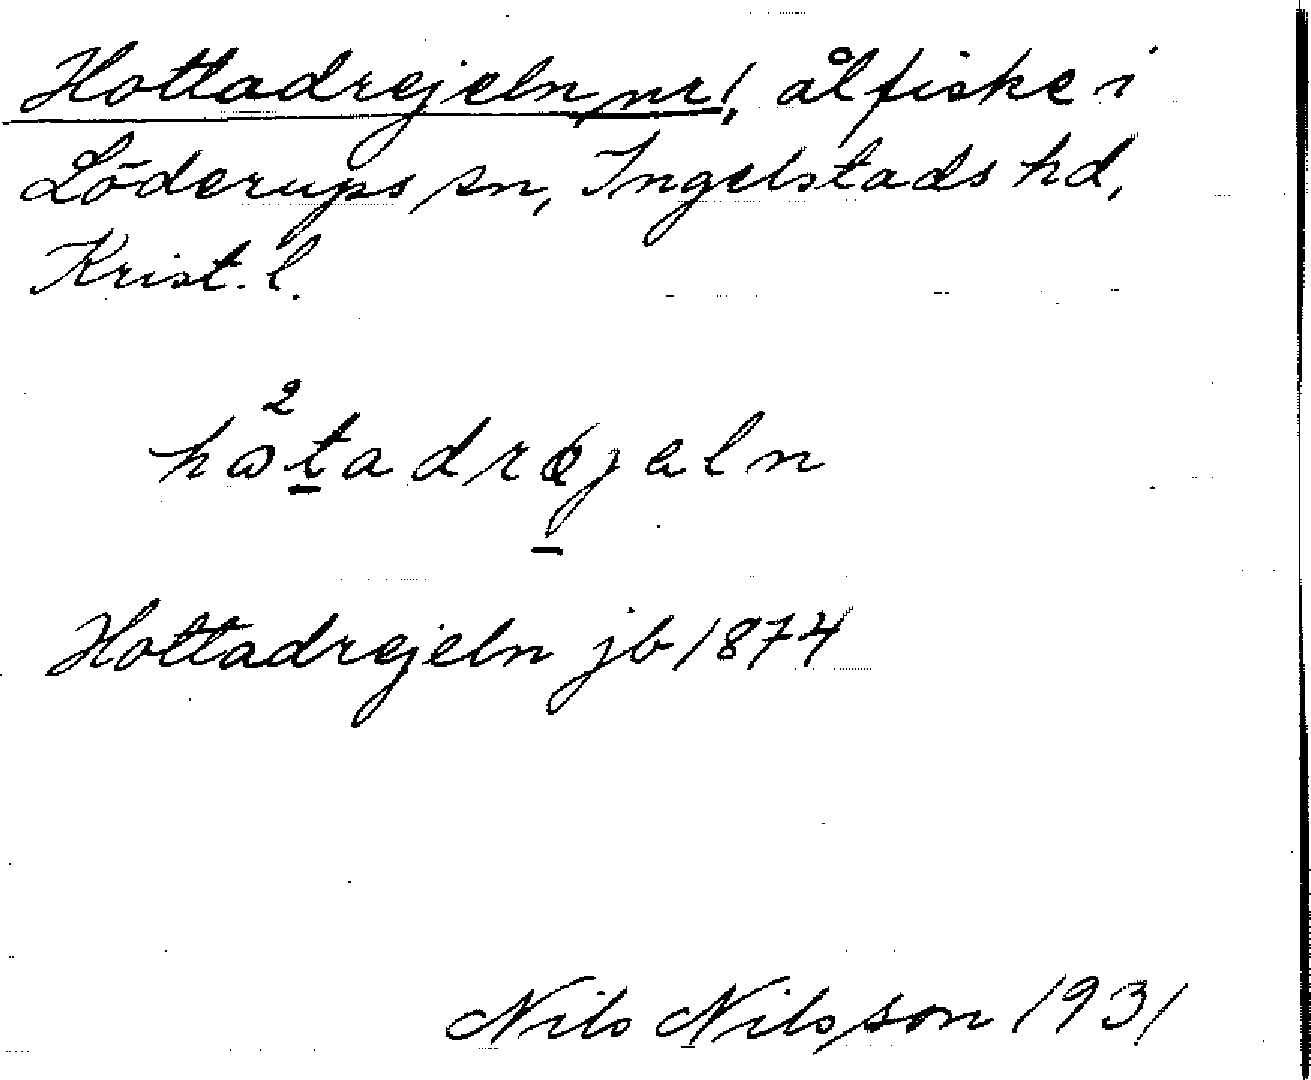 Hottadrejeln nr 1, ålfiske i
Löderups sn, Ingelstads hd,
Krist. l.
2
hɷtadrøjəln
Hottadrejeln jb 1874
Nils Nilsson 1931